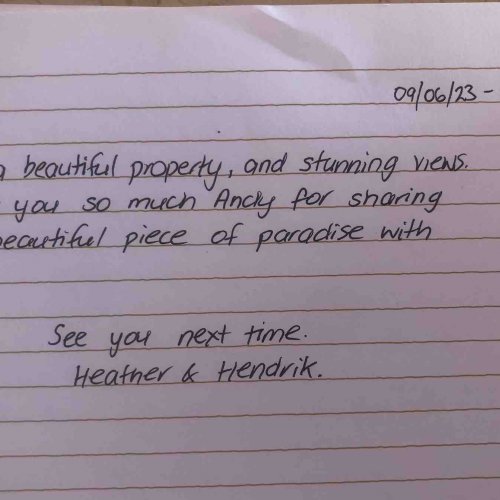 09/06/23 -
a beautiful property, and stunning views.
you so much Andy for sharing
beautiful piece of paradise with
See you next time.
Heather & Hendrik.